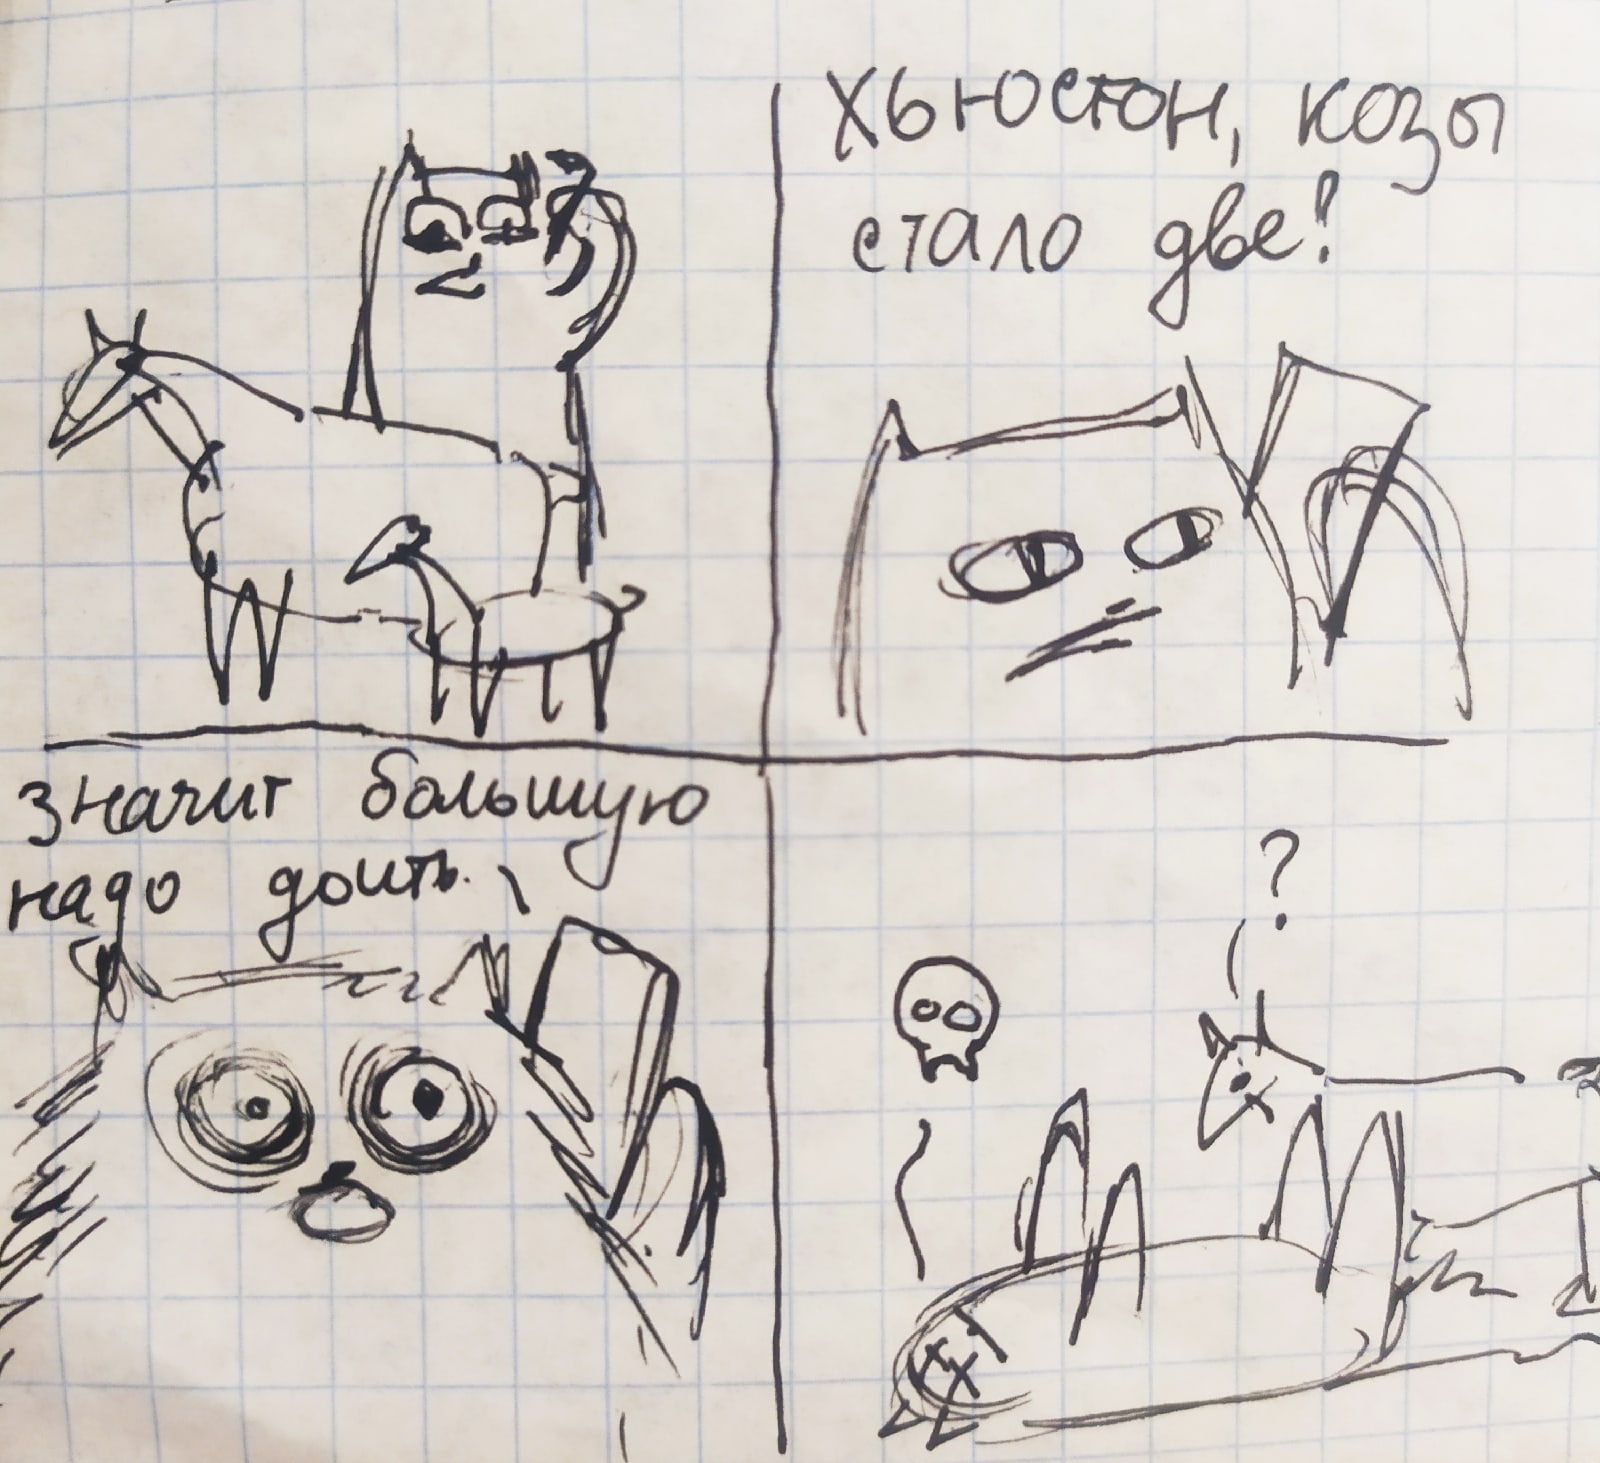 Хьюстон, козы
стало две!
значит большую
надо доить.
?